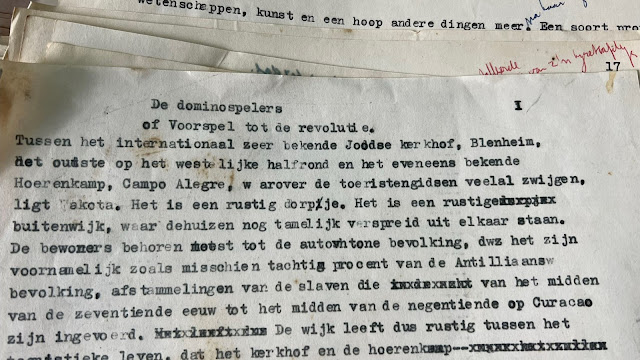 wetenschappen, kunst en een hoop andere dingen meer. Een soort pro
17
De dominospelers I
of Voorspel tot de revolutie.
Tussen het internationaal zeer bekende Joodse kerkhof, Blenheim,
het oudste op het westelijke halfrond en het eveneens bekende
Hoerenkamp, Campo Alegre, w arover de toeristengidsen veelal zwijgen,
ligt Wakota. Het is een rustig dorpje. Het is een rustige
buitenwijk, waar dehuizen nog tamelijk verspreid uit elkaar staan.
De bewoners behoren meest tot de autowhtone bevolking, dwz het zijn
voornamelijk zoals misschien tachtig procent van de Antilliaansw
bevolking, afstammelingen van de slaven die van het midden
van de zeventiende eeuw tot het midden van de negentiende op Curacao
zijn ingevoerd. De wijk leeft dus rustig tussen het
leven, dat het kerkhof en de hoerenkamp--